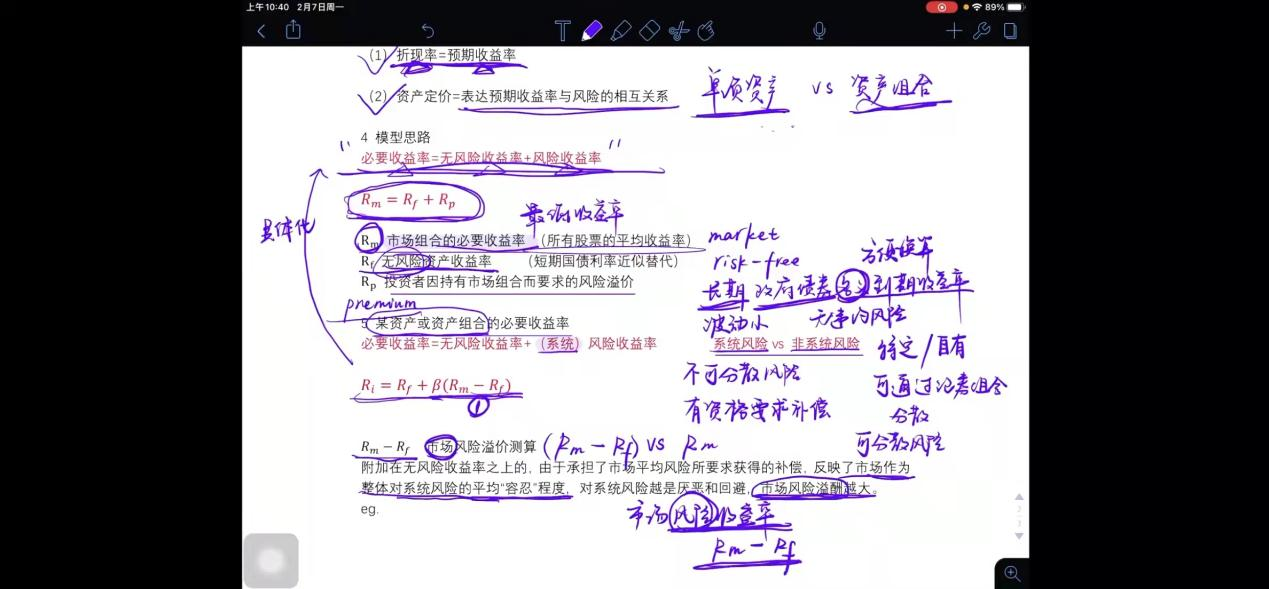 上午10:40 2月7日周一
89%
(1) 折现率=预期收益率
(2) 资产定价=表达预期收益率与风险的相互关系
单项资产 vs 资产组合
4 模型思路
“必要收益率=无风险收益率+风险收益率”
Rm = Rf + Rp
最低收益率
具体化
Rm 市场组合的必要收益率 (所有股票的平均收益率) market
Rf 无风险资产收益率 (短期国债利率近似替代) risk-free
Rp 投资者因持有市场组合而要求的风险溢价
长期 政府债券 名义到期收益率
premium
波动小 无事内风险
5 某资产或资产组合的必要收益率
必要收益率=无风险收益率+(系统)风险收益率
系统风险 vs 非系统风险 特定/自有
不可分散风险
可通过证券组合
分散
Ri = Rf + β(Rm − Rf)
①
有资格要求补偿
可分散风险
Rm − Rf 市场风险溢价测算 (Rm − Rf) vs Rm
附加在无风险收益率之上的, 由于承担了市场平均风险所要求获得的补偿, 反映了市场作为
整体对系统风险的平均“容忍”程度, 对系统风险越是厌恶和回避, 市场风险溢酬越大。
eg.
市场风险收益率
Rm − Rf